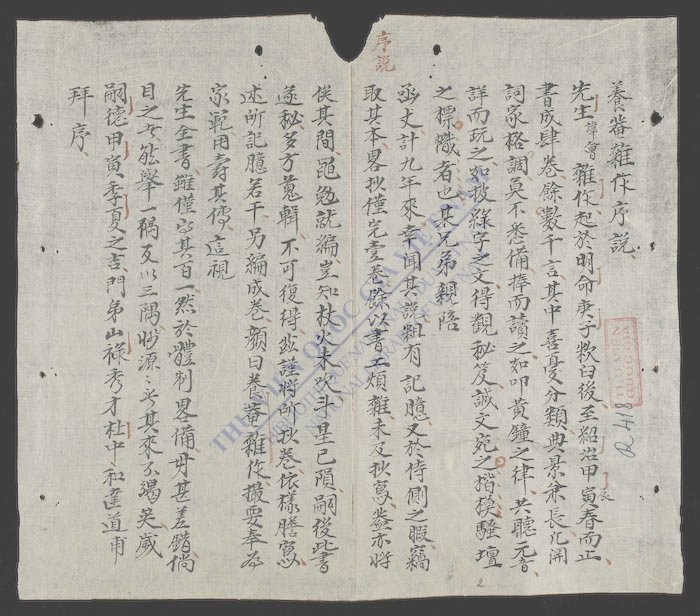 序説
養菴雜作序説
先生舉會雜作起於明命庚子教臼後至紹治甲寅辰春而止
書成肆卷餘數千言其中喜憂分類典景兼長凡開
詞家格調莫不悉備捧而讀之如叩黃鐘之律共聽元音
詳而玩之如披綠字之文得觀秘笈誠文宛之楷模騷壇
之標幟者也某兄弟親陪
函丈計九年來幸聞其説粗有記臆又於侍側之暇竊
取其本畧抄僅完壹卷餘以書工煩雜未及抄寫蓋亦將
俟其間黽勉就編豈知杖火未吹斗星已隕嗣後此書
遂秘多方蒐輯不可復得茲謹將所抄卷依樣謄寫以
述所記臆若干另編成卷顏曰養菴雜作撮要奉為
家範用壽其傳這視
先生全書雖僅其百一然於體制畧備毋甚差錯倘
目之者能舉一隅反以三隅則源〻乎其來不竭矣歲
嗣德甲寅季夏之吉門弟山祿秀才杜中和達道甫
拜序
R.418
2
THƯ VIỆN QUỐC GIA VIỆT NAM